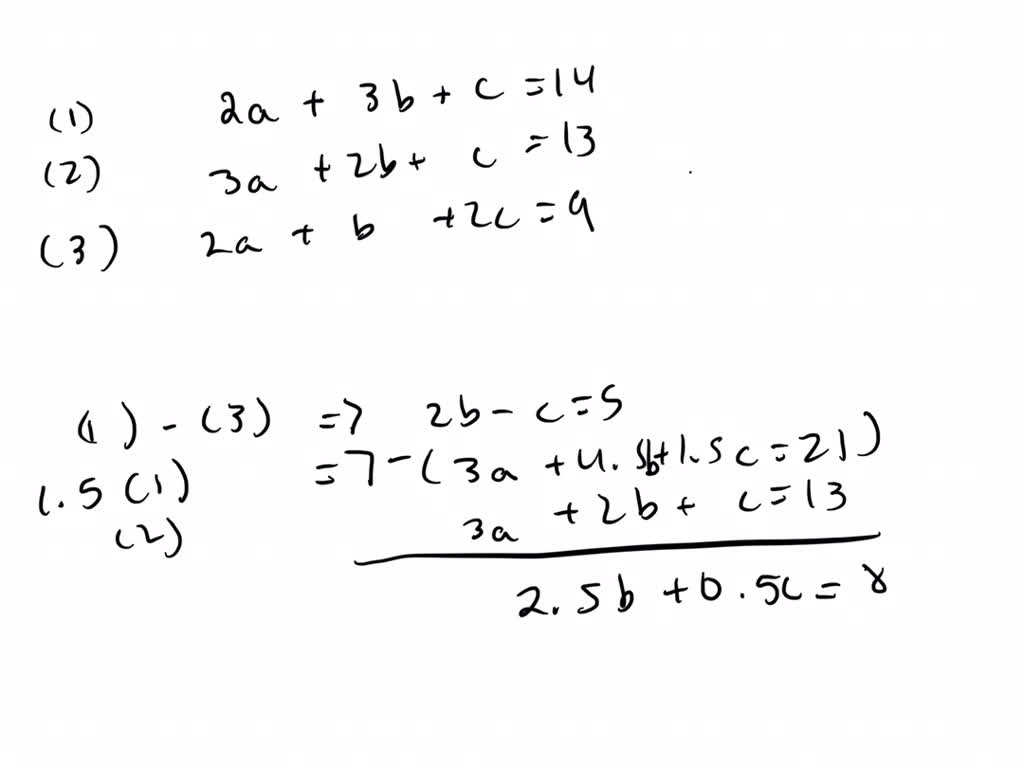 (1) 2a + 3b + c = 14
(2) 3a + 2b + c = 13
(3) 2a + b + 2c = 9
(1) - (3) => 2b - c = 5
1.5 (1) => - (3a + 4.5b + 1.5c = 21)
(2) 3a + 2b + c = 13
2.5b + 0.5c = 8